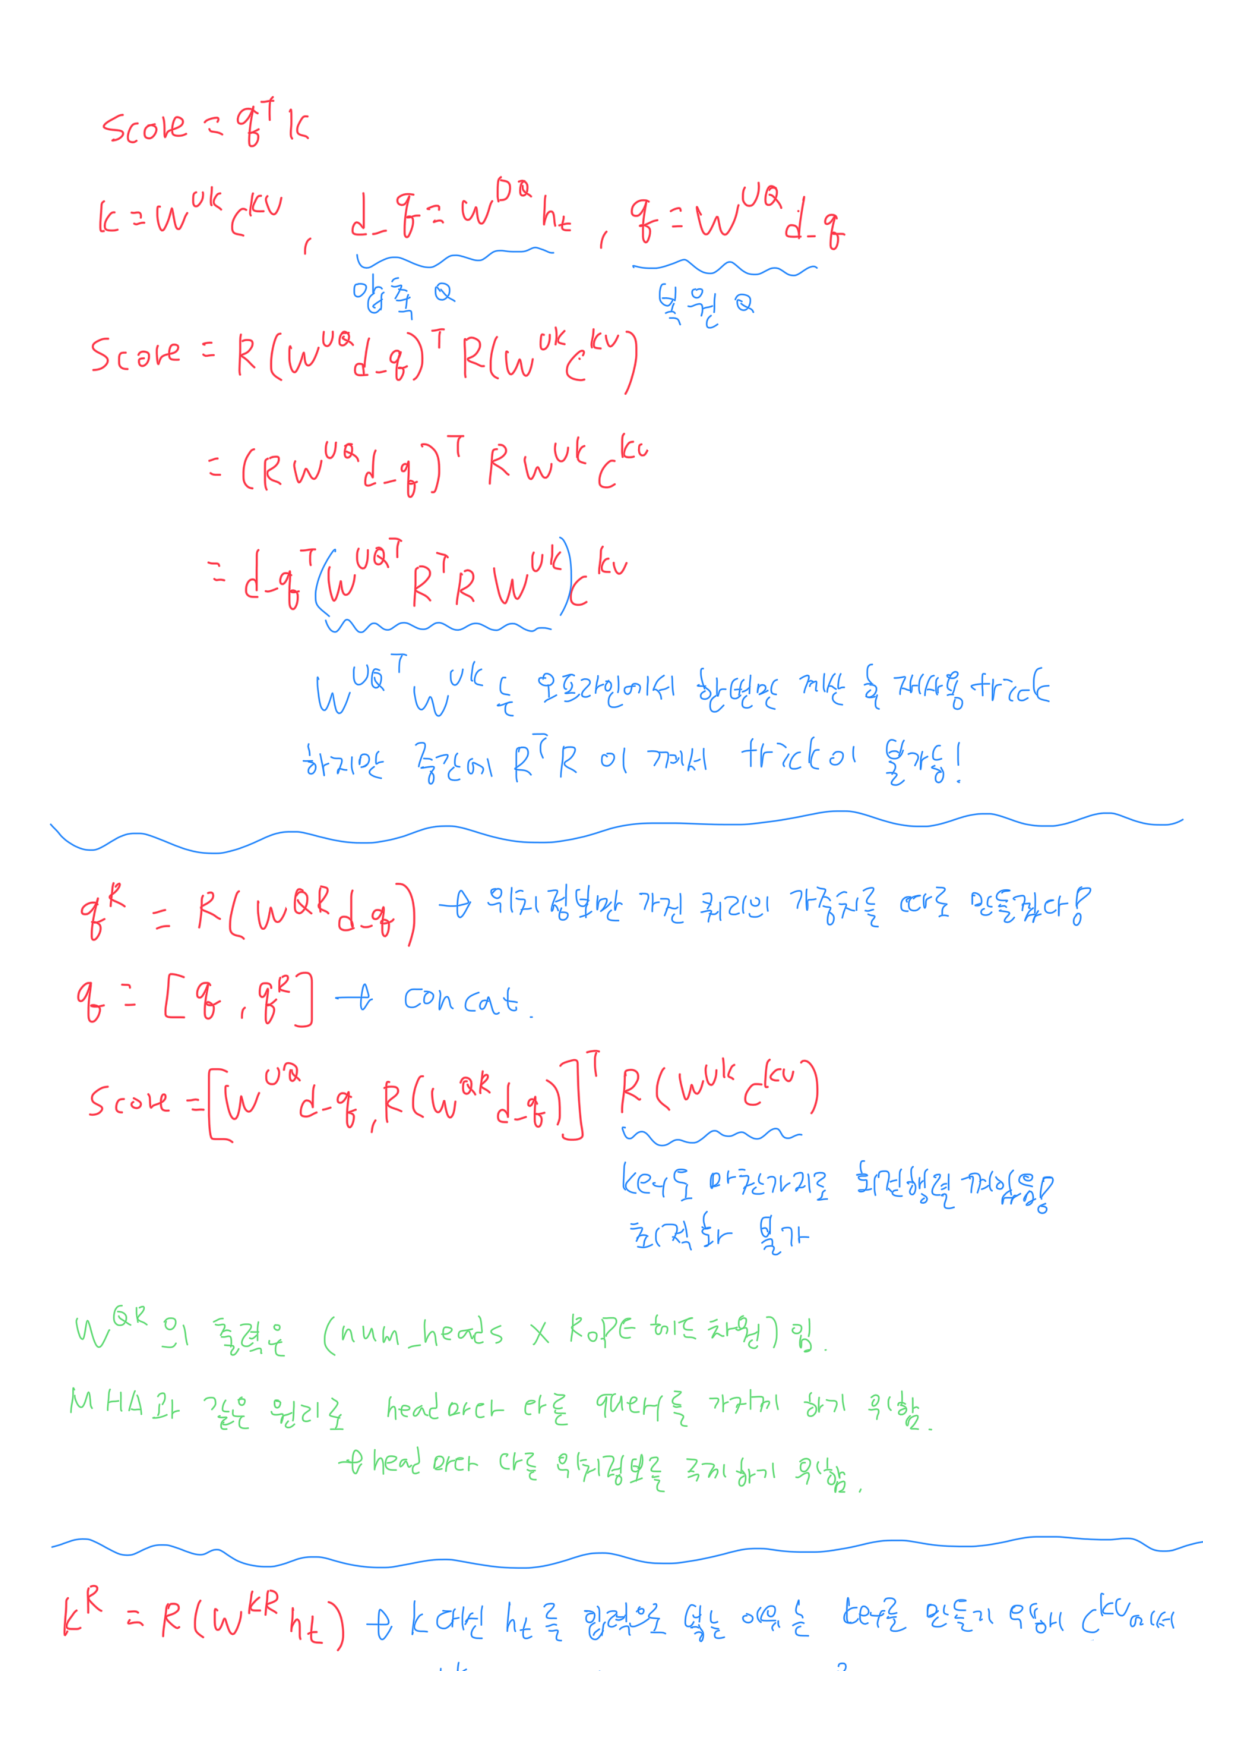 Score = q^T k
k = W^{UK} C^{KV} , d_q = W^{DQ} h_t , q = W^{UQ} d_q
압축 Q 복원 Q
Score = R(W^{UQ} d_q)^T R(W^{UK} C^{KV})
= (R W^{UQ} d_q)^T R W^{UK} C^{KV}
= d_q^T (W^{UQ^T} R^T R W^{UK}) C^{KV}
W^{UQ^T} W^{UK} 는 오프라인에서 한번만 계산 후 재사용 trick
하지만 중간에 R^T R 이 껴서 trick이 불가능!
q^R = R(W^{QR} d_q) → 위치정보만 가진 쿼리의 가중치를 따로 만들겠다!
q = [q , q^R] → concat.
Score = [W^{UQ} d_q , R(W^{QR} d_q)]^T R(W^{UK} C^{KV})
key도 마찬가지로 회전행렬 껴있음!
최적화 불가
W^{QR} 의 출력은 (num_heads × RoPE 헤드차원) 임.
MHA과 같은 원리로 head마다 다른 query를 가지게 하기 위함.
→ head마다 다른 위치정보를 주기 위함.
k^R = R(W^{KR} h_t) → k 대신 h_t를 입력으로 넣는 이유는 key를 만들기 위해 C^{KV}에서